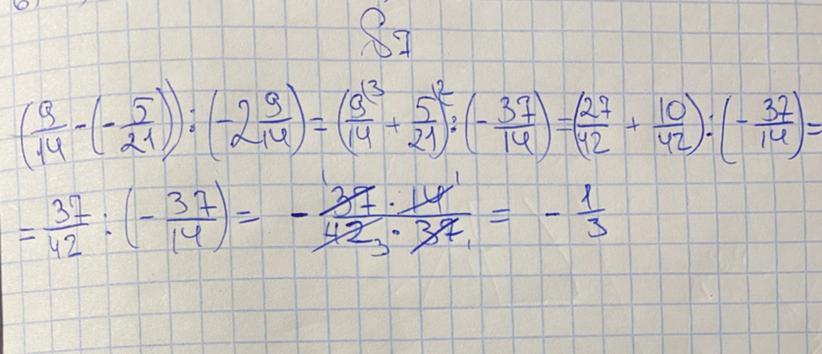 87
(9/14 - (- 5/21)) : (- 2 9/14) = (9/14 \3 + 5/21 \2) : (- 37/14) = (27/42 + 10/42) : (- 37/14) =
= 37/42 : (- 37/14) = - 37 1 · 14 1 / 42 3 · 37 1 = - 1/3